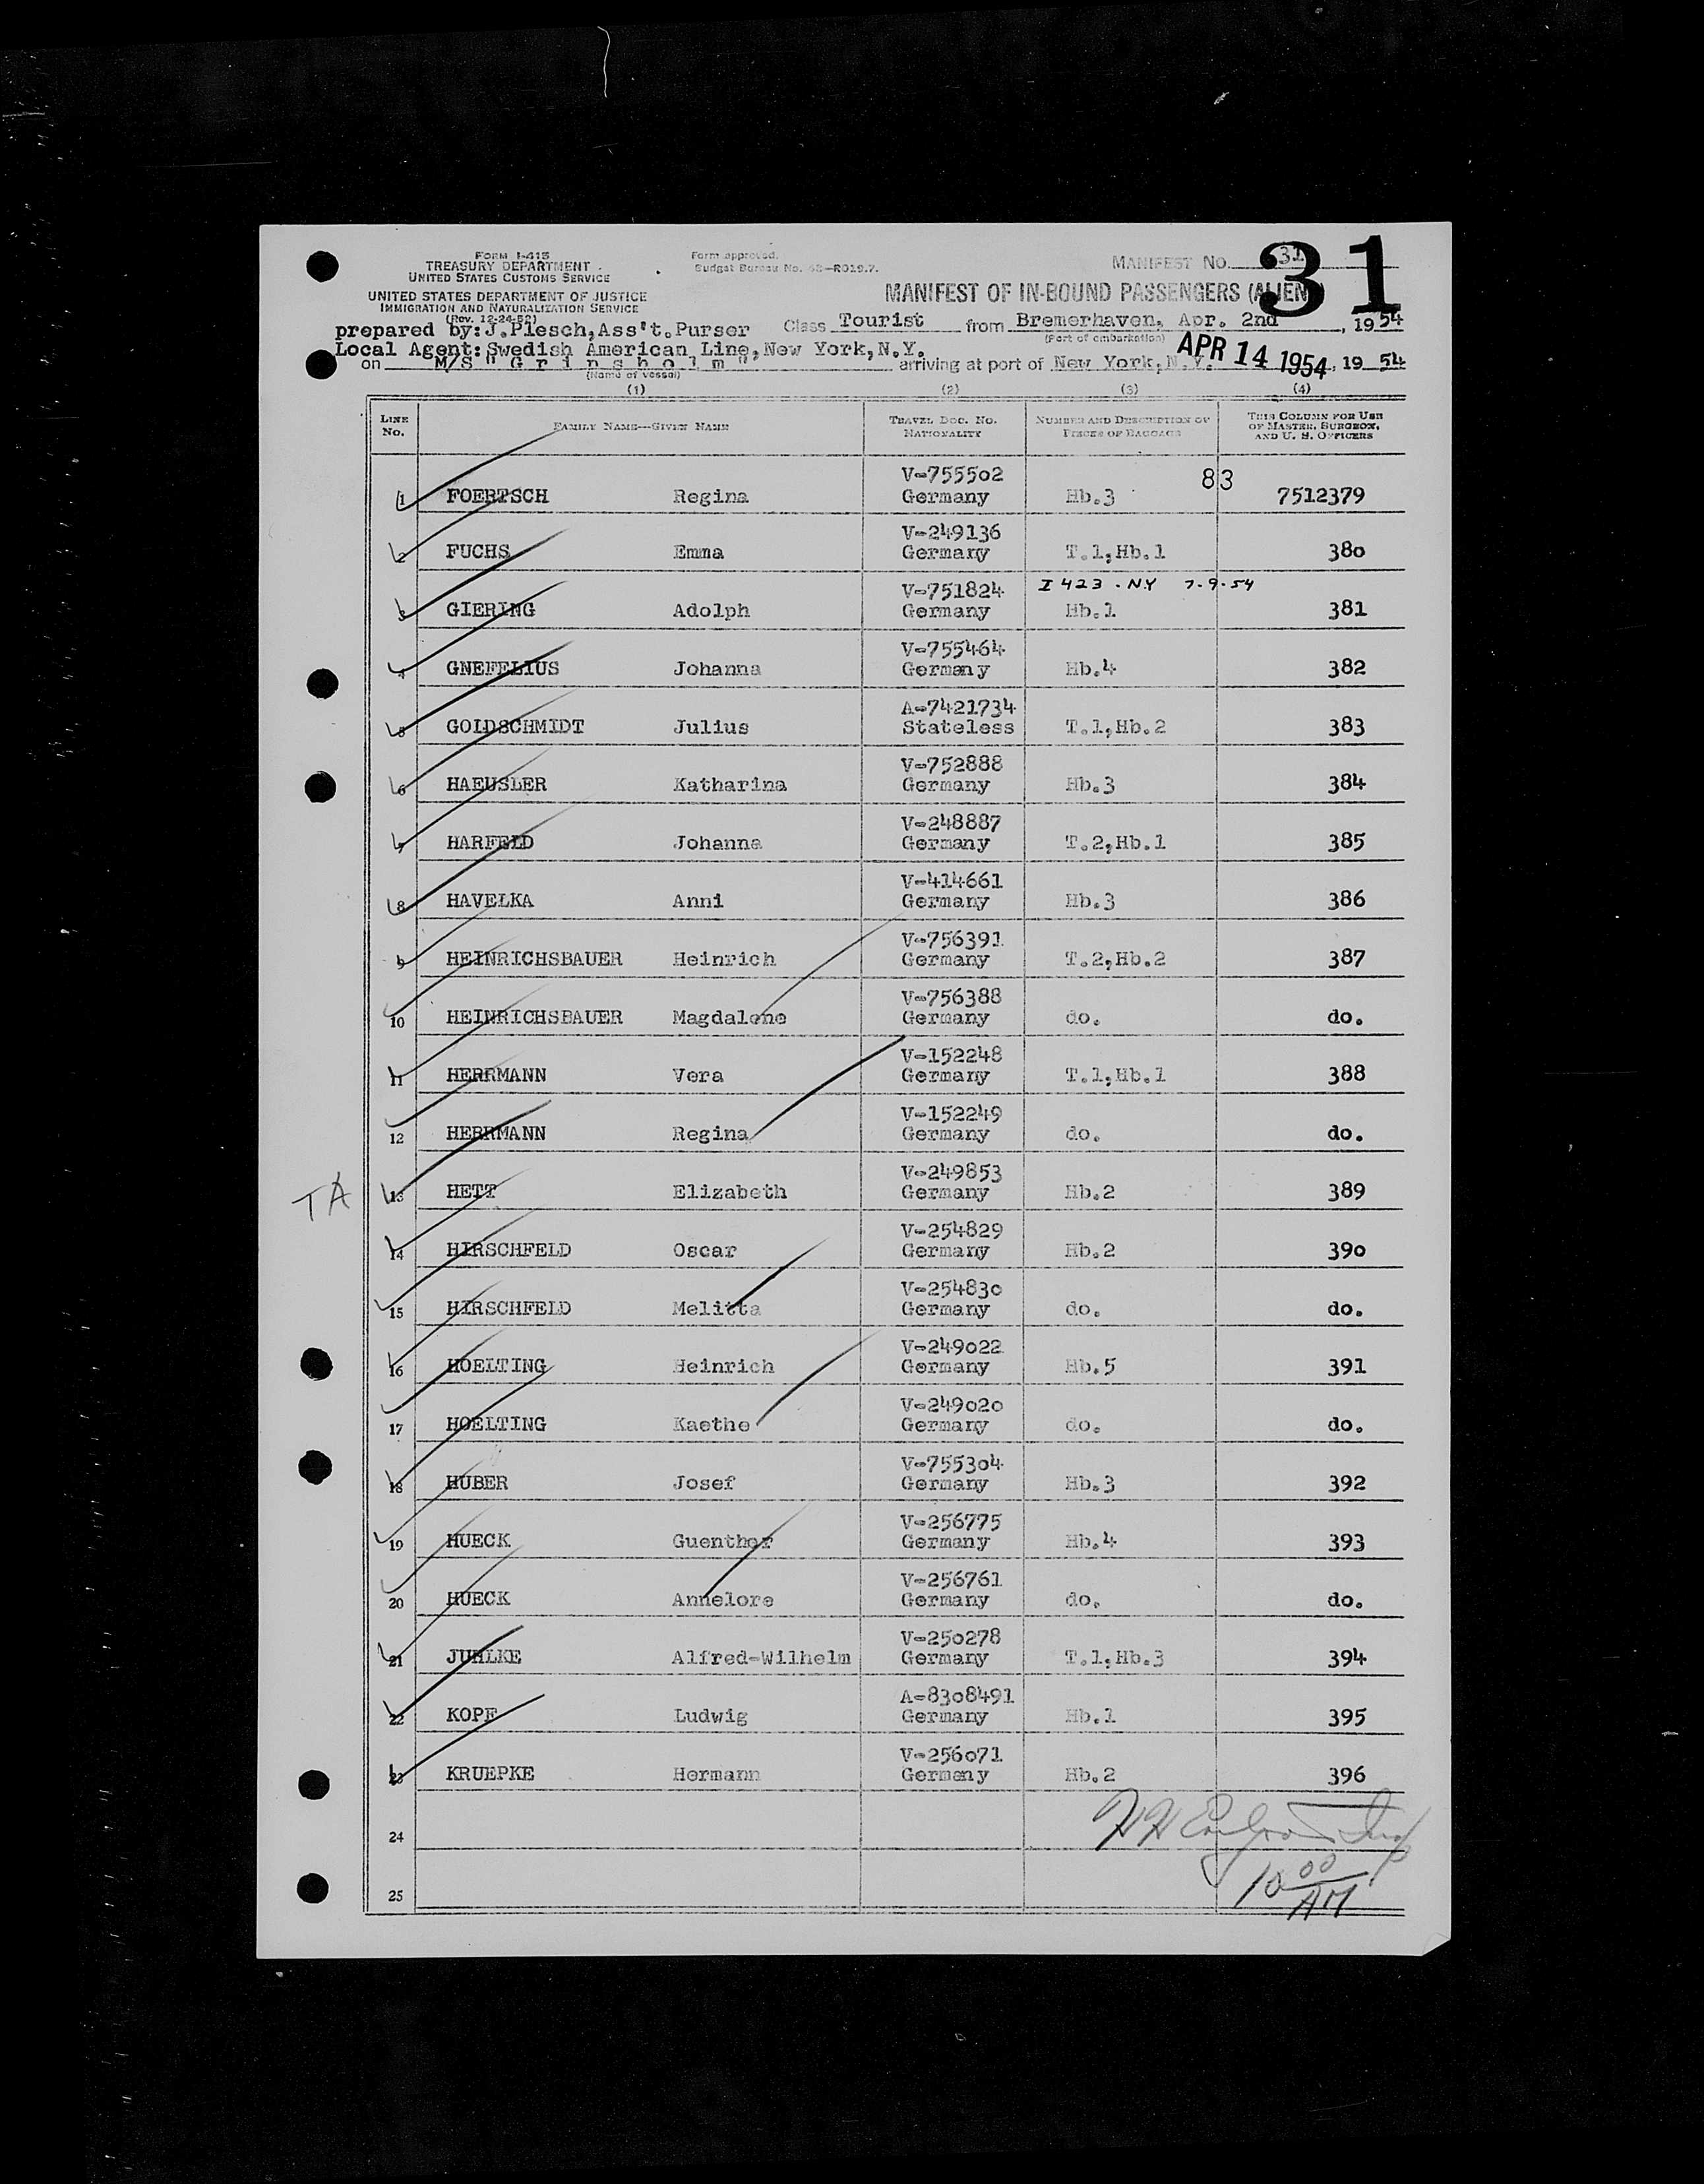 FORM I-415
TREASURY DEPARTMENT
UNITED STATES CUSTOMS SERVICE
UNITED STATES DEPARTMENT OF JUSTICE
IMMIGRATION AND NATURALIZATION SERVICE
(Rev. 12-24-52)
Form approved.
Budget Bureau No. 43-R019.7.
MANIFEST NO. 31
31
MANIFEST OF IN-BOUND PASSENGERS (ALIEN)
prepared by: J.Plesch, Ass't. Purser Class Tourist from Bremerhaven, Apr. 2nd, 1954
(Port of embarkation)
Local Agent: Swedish American Line, New York, N.Y.
on M/S "Gripsholm" arriving at port of New York, N.Y. APR 14 1954, 19 54
(Name of vessel)
(1) (2) (3) (4)
LINE NO. FAMILY NAME—GIVEN NAME TRAVEL DOC. NO. NATIONALITY NUMBER AND DESCRIPTION OF PIECES OF BAGGAGE THIS COLUMN FOR USE OF MASTER, SURGEON, AND U. S. OFFICERS
V-755502 83
1 FOERTSCH Regina Germany Hb.3 7512379
V-249136
2 FUCHS Emma Germany T.1,Hb.1 380
V-751824 I 423 - NY 7-9-54
3 GIERING Adolph Germany Hb.1 381
V-755464
4 GNEFELIUS Johanna Germany Hb.4 382
A-7421734
5 GOLDSCHMIDT Julius Stateless T.1,Hb.2 383
V-752888
6 HAEUSLER Katharina Germany Hb.3 384
V-248887
7 HARFELD Johanna Germany T.2,Hb.1 385
V-414661
8 HAVELKA Anni Germany Hb.3 386
V-756391
9 HEINRICHSBAUER Heinrich Germany T.2,Hb.2 387
V-756388
10 HEINRICHSBAUER Magdalene Germany do. do.
V-152248
11 HERRMANN Vera Germany T.1,Hb.1 388
V-152249
12 HERRMANN Regina Germany do. do.
V-249853
TA 13 HETT Elizabeth Germany Hb.2 389
V-254829
14 HIRSCHFELD Oscar Germany Hb.2 390
V-254830
15 HIRSCHFELD Melitta Germany do. do.
V-249022
16 HOELTING Heinrich Germany Hb.5 391
V-249020
17 HOELTING Kaethe Germany do. do.
V-755304
18 HUBER Josef Germany Hb.3 392
V-256775
19 HUECK Guenther Germany Hb.4 393
V-256761
20 HUECK Annelore Germany do. do.
V-250278
21 JUHLKE Alfred-Wilhelm Germany T.1,Hb.3 394
A-8308491
22 KOPF Ludwig Germany Hb.1 395
V-256071
23 KRUEPKE Hermann Germany Hb.2 396
24
25
10 00 AM